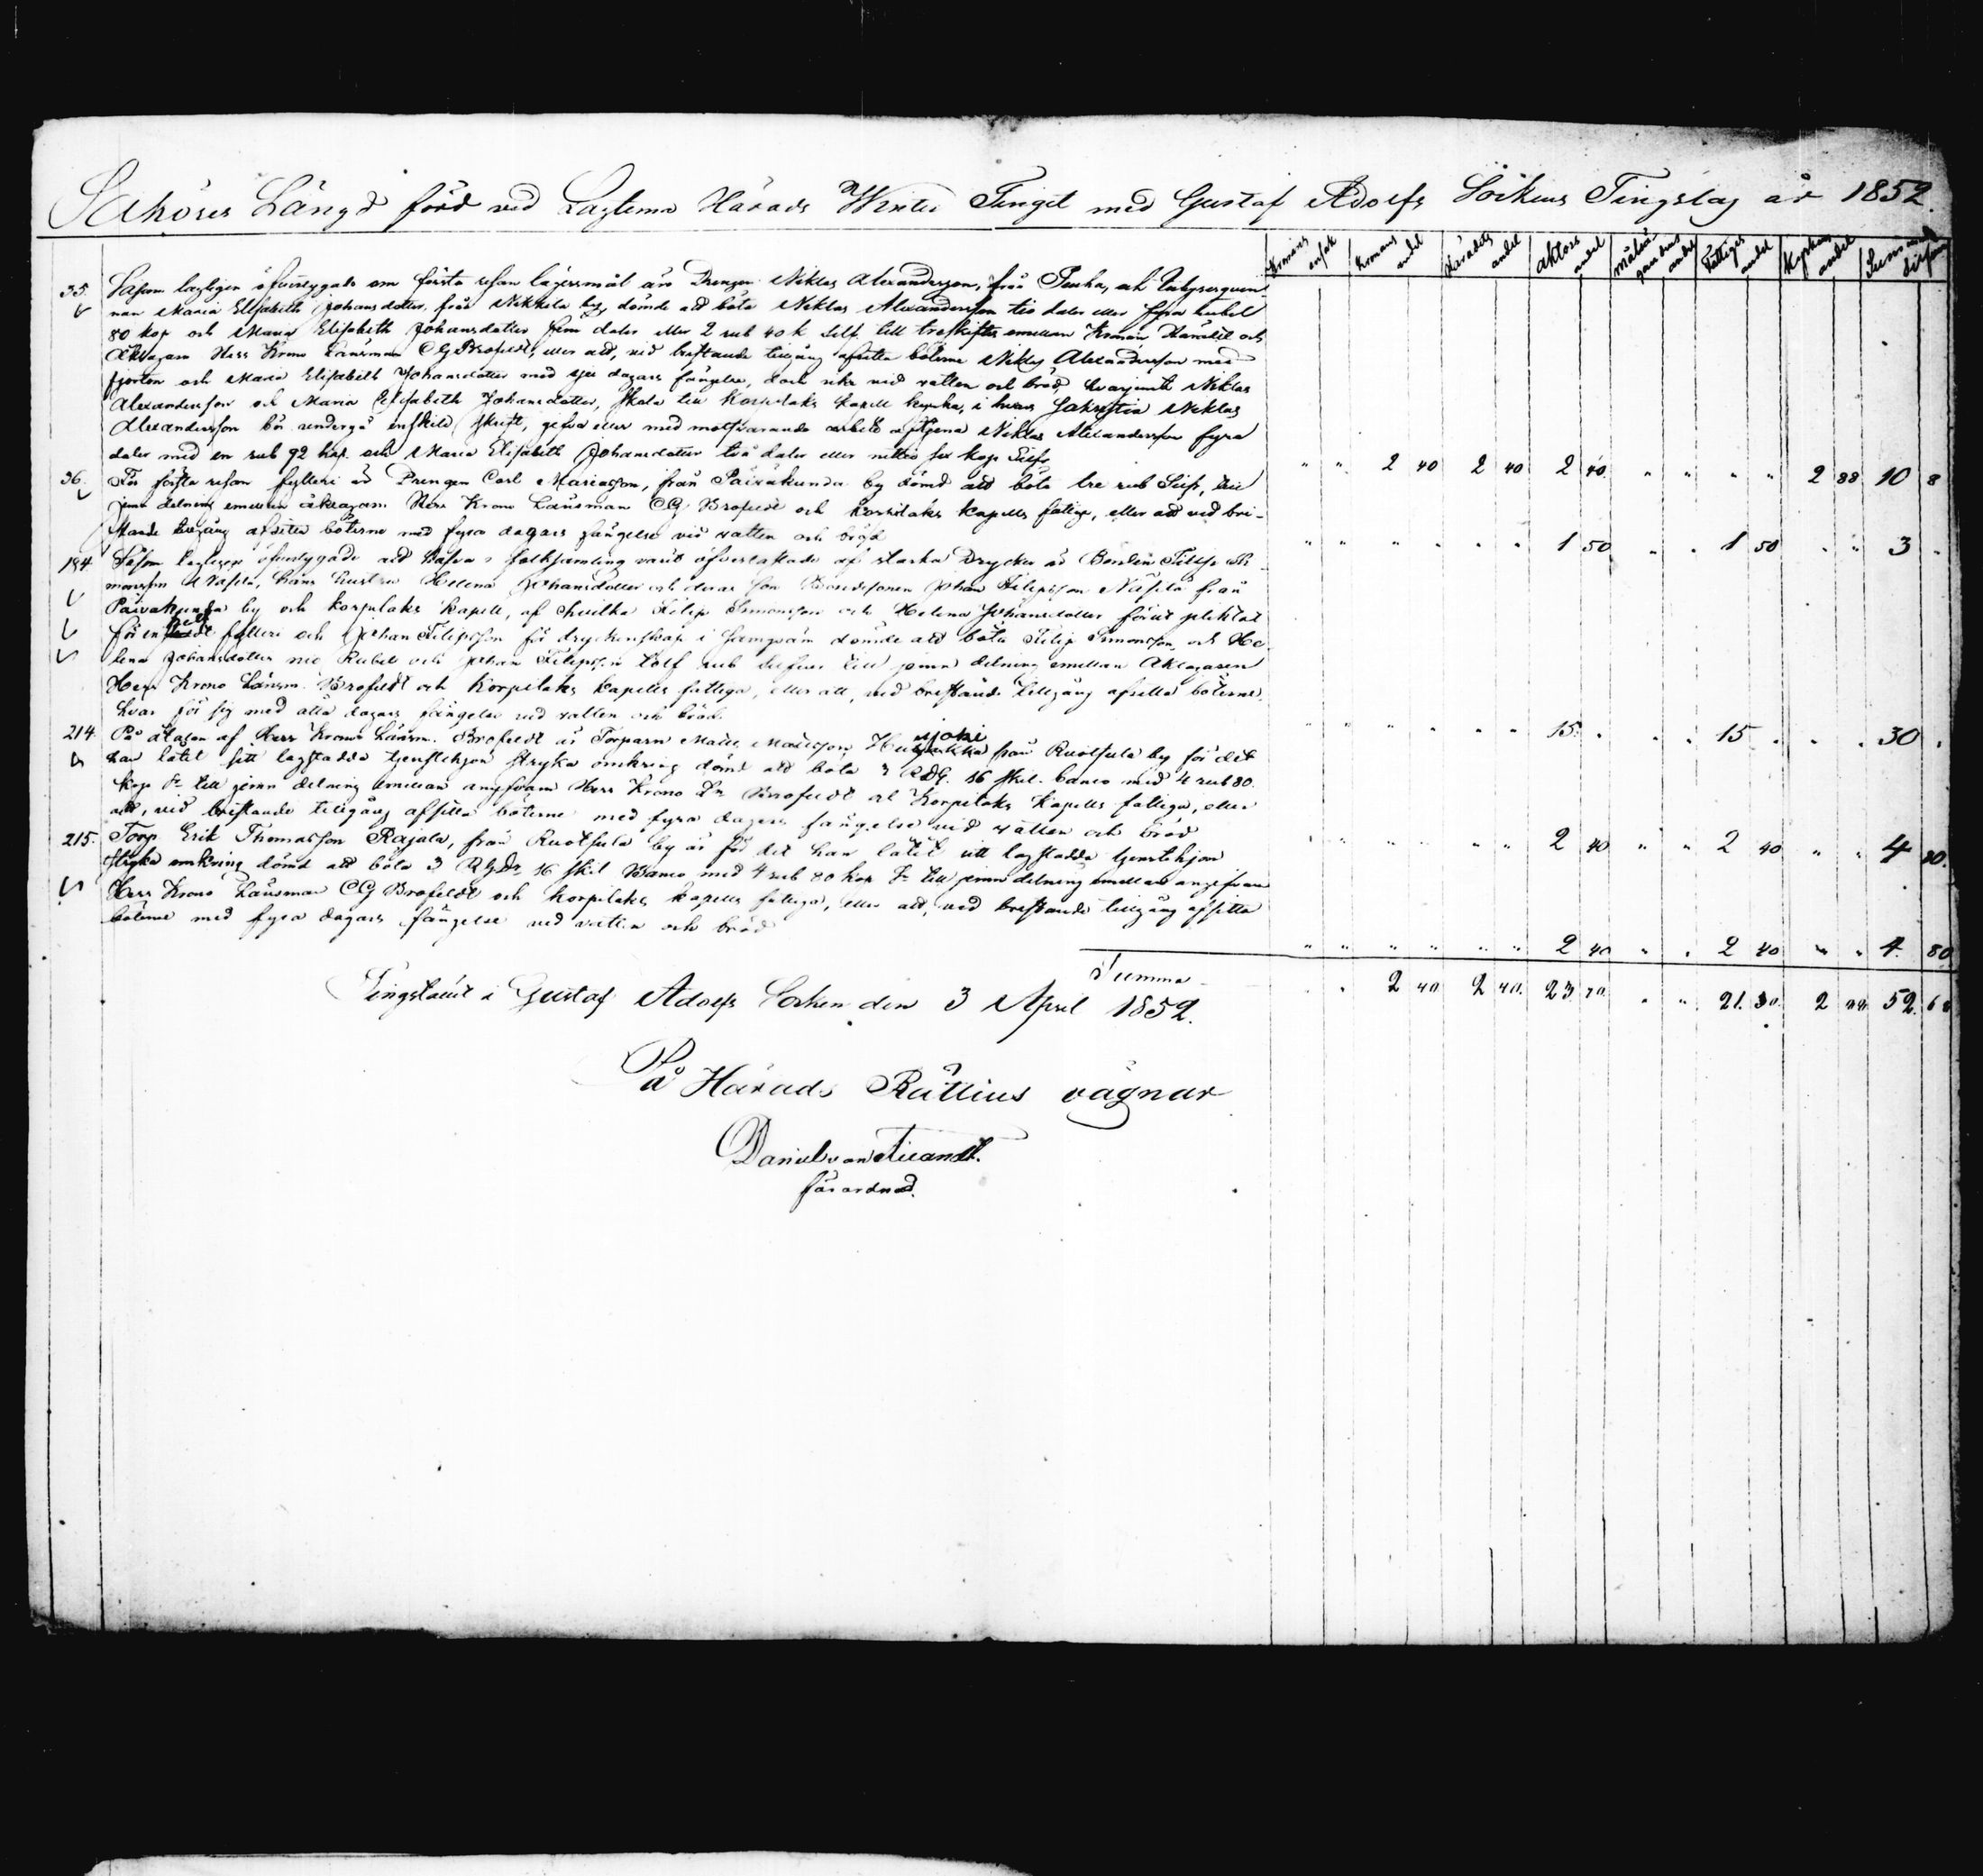 Saköres Längd förd vid Lagtima Härads Winter Tinget med Gustaf Adolfs Sockens Tingslag år 1852.
Kronans ensak Kronans andel Häradets andel Aktors andel Målsägandens andel Fattiges andel Kyrkans andel Summa
35. Såsom lagligen öfvertygade om första resan lägersmål äro Drengen Niklas Alexandersson, från Tenha, och Inhysesqvin-
nan Maria Elisabeth Johansdotter, från Nikkola by, dömde att böta Niklas Alexandersson tio daler eller fyra Rubel
80 kop och Maria Elisabeth Johansdotter fem daler eller 2 rub 40 k Silf. till treskiftes emellan Kronan, Häradet och
Åklagaren Herr Krono Länsman CG Brofeldt, eller att, vid bristande tillgång afsitta böterne Niklas Alexandersson med
fjorton och Maria Elisabeth Johansdotter med sju dagars fängelse, dock icke vid vatten och bröd, hvarjemte Niklas
Alexandersson och Maria Elisabeth Johansdotter, skola till Korpilaks kapell kyrka, i hvars Sakristia Niklas
Alexandersson bör undergå enskild skrift, gifva eller med motsvarande arbete aftjena Niklas Alexandersson fyra
daler med en rub 92 kop. och Maria Elisabeth Johansdotter två daler eller nittio sex kop Silfr
" " 2 40 2 40 2 40 " " " " 2 88 10 8
36. För första resan fylleri är Drengen Carl Mariasson, från Päiväkunda by dömd att böta tre rub Silfr, till
jemn delning emellan åklagaren Herr Krono Länsman CG Brofeldt och Korpilaks kapells fattige, eller att vid bri-
stande tillgång afsitta böterne med fyra dagars fängelse vid vatten och bröd
" " " " " " 1 50 " " 1 50 " " 3 "
194. Såsom lagligen öfvertygade att hafva i folksamling varit öfverlastade af starka Drycker är Bonden Filip Si-
monsson Näsilä, hans hustru Helena Johansdotter och deras son Bondesonen Johan Filipsson Näsilä från
Päiväkunda by och Korpilaks kapell, af hvilka Filip Simonsson och Helena Johansdotter förut pliktat
för en fylleri och Johan Filipsson för dryckenskap i dömde att böta Filip Simonsson och He-
lena Johansdotter nio Rubel och Johan Filipsson tolf rub Silfver till jemn delning emellan Åklagaren
Herr Krono Länsm. Brofeldt och Korpilaks kapells fattiga, eller att, vid bristande tillgång afsitta böterne,
hvar för sig med åtta dagars fängelse vid vatten och bröd.
" " " " " " 15. " " 15 " " " 30 "
214. På åtalan af Herr Krono Länsm. Brofeldt är Torparn Matts Mattsson från Ruolsula by för det
han låtit sitt lagstadda tjenstehjon stryka omkring dömd att böta 3 RDG. 16 skil. banco med 4 rub 80.
kop Sr till jemn delning emellan angifvaren Herr Krono Brofeldt och Korpilaks kapells fattiga, eller
att, vid bristande tillgång afsitta böterne med fyra dagars fängelse vid vatten och bröd
" " " " " " 2 40 " " 2 40 " " 4 80.
215. Torp. Erik Thomasson Rajala, från Ruolsula by är för det han låtit sitt lagstadda tjenstehjon
stryka omkring dömd att böta 3 RGDr 16 skil Banco med 4 rub 80 kop Sr till jemn delning emellan angifvaren
Herr Krono Länsman CG Brofeldt och Korpilaks kapells fattiga, eller att, vid bristande tillgång afsitta
böterne med fyra dagars fängelse vid vatten och bröd
" " " " " " 2 40 " " 2 40 " " 4. 80
Summa " " 2 40 2 40. 23 70 " " 21. 30. 2 88 52. 68
Tingstället i Gustaf Adolfs Socken den 3 April 1852.
På Härads Rättens vägnar
Daniel
förordnad.